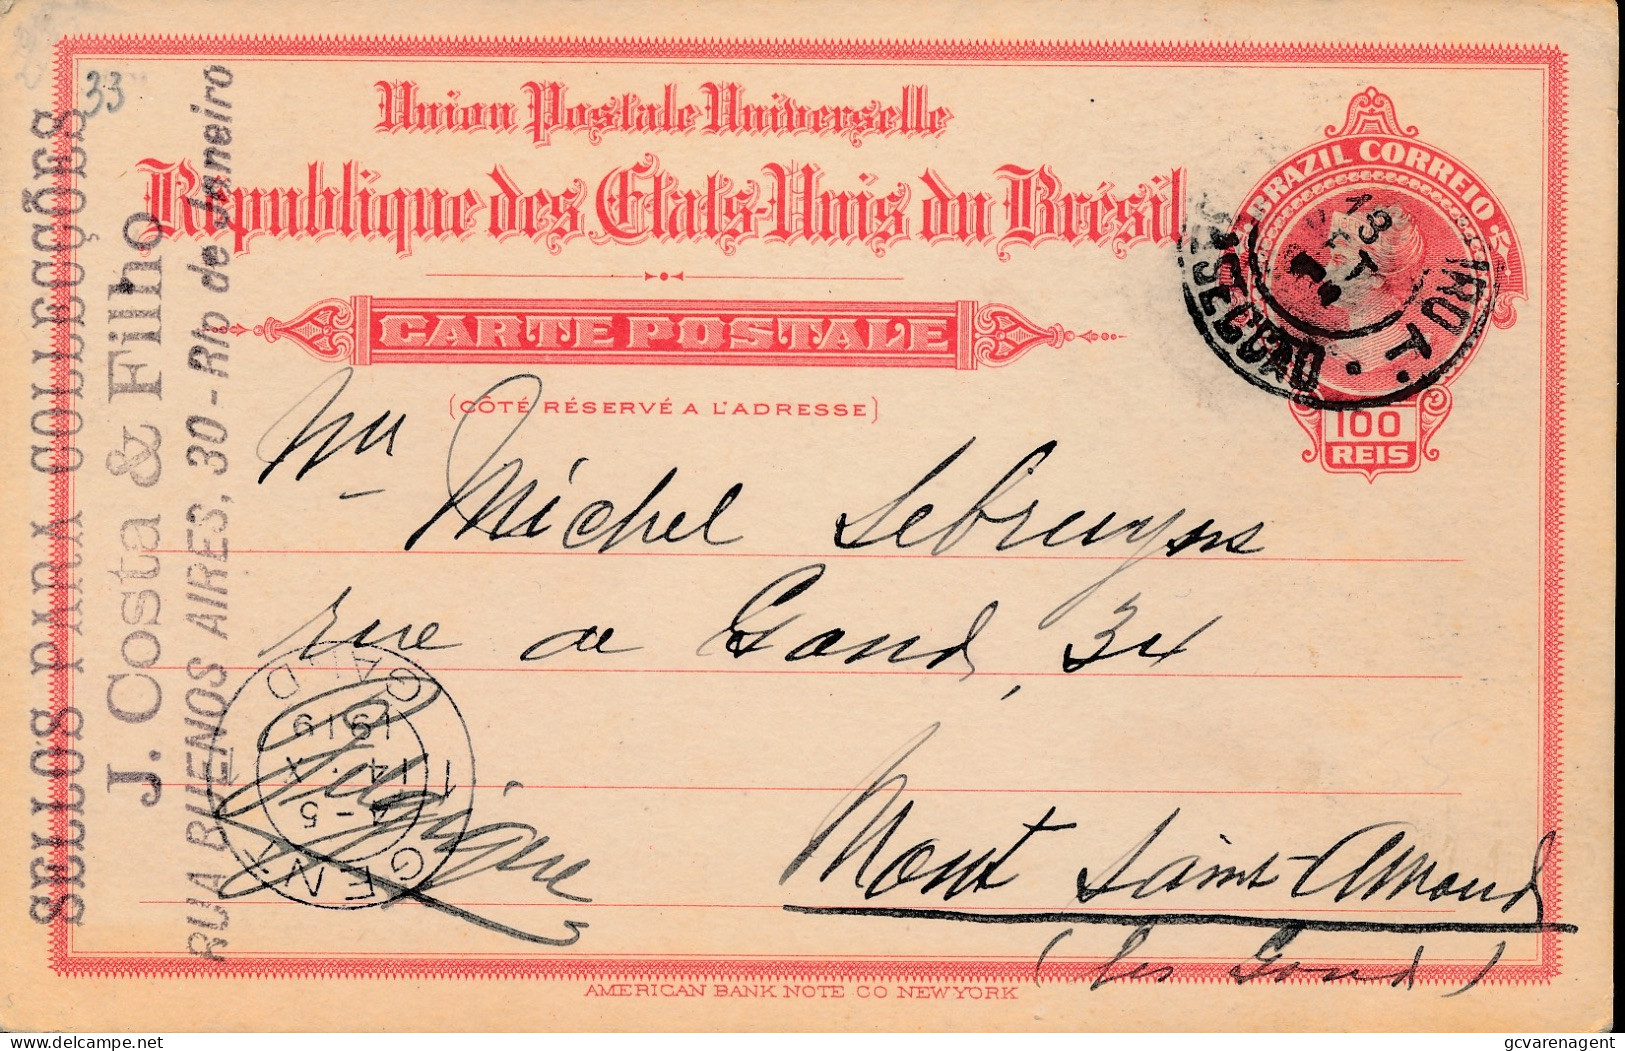 33
Union Postale Universelle
République des Etats-Unis du Brésil
CARTE POSTALE
(CÔTÉ RÉSERVÉ A L'ADRESSE)
BRAZIL CORREIO
100
REIS
SECÇÃO
13
SELLOS PARA COLLECÇÕES
J. Costa & Filho
RUA BUENOS AIRES, 30 - Rio de Janeiro
Michel Lebruyns
rue de Gand, 34
Belgique
Mont Saint-Amand
(lez Gand)
GENT
GAND
4-5
14.X
1919
1
AMERICAN BANK NOTE CO NEW YORK
Delcampe.net
gcvarenagent